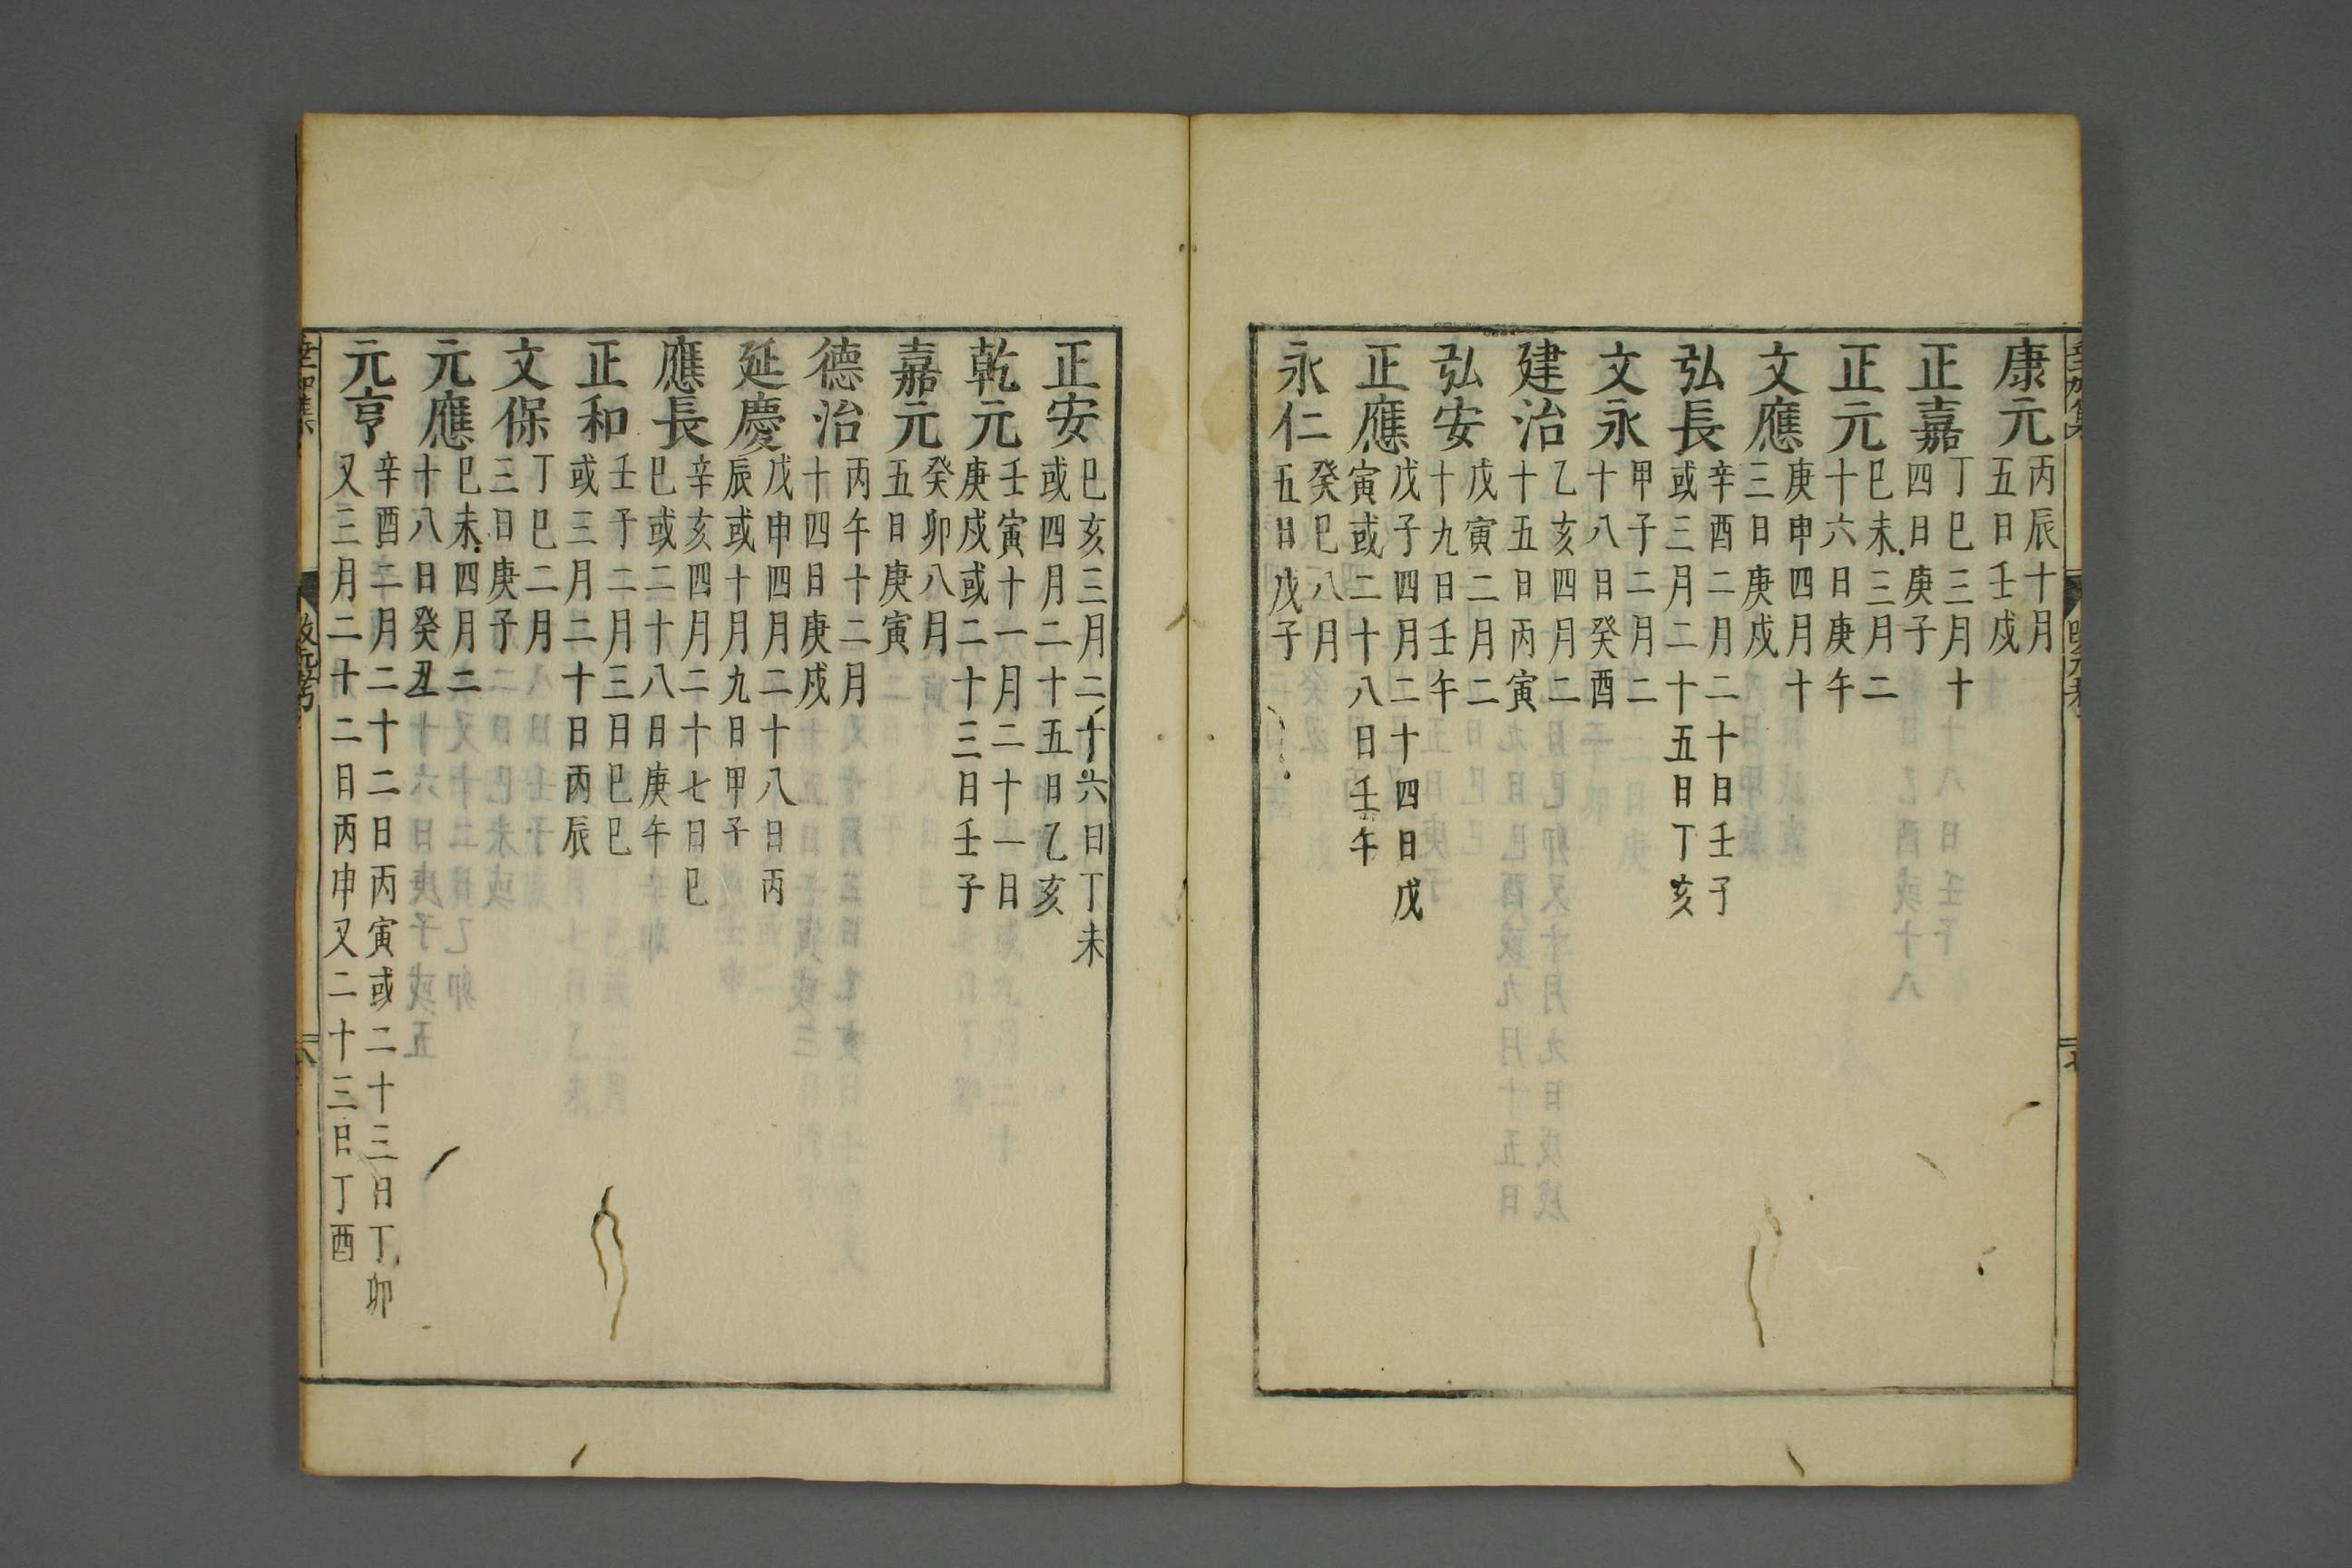 康元 丙辰十月
五日壬戌
正嘉 丁巳三月十
四日庚子
正元 巳未三月二
十六日庚午
文應 庚申四月十
三日庚戌
弘長 辛酉二月二十日壬子
或三月二十五日丁亥
文永 甲子二月二
十八日癸酉
建治 乙亥四月二
十五日丙寅
弘安 戊寅二月二
十九日壬午
正應 戊子四月二十四日戊
寅或二十八日壬午
永仁 癸巳八月
五日戊子
正安 巳亥三月二十六日丁未
或四月二十五日乙亥
乾元 壬寅十一月二十一日
庚戌或二十三日壬子
嘉元 癸卯八月
五日庚寅
德治 丙午十二月
十四日庚戌
延慶 戊申四月二十八日丙
辰或十月九日甲子
應長 辛亥四月二十七日巳
巳或二十八日庚午
正和 壬子二月三日巳巳
或三月二十日丙辰
文保 丁巳二月
三日庚子
元應 巳未四月二
十八日癸丑
元亨 辛酉二月二十二日丙寅或二十三日丁卯
又三月二十二日丙申又二十三日丁酉